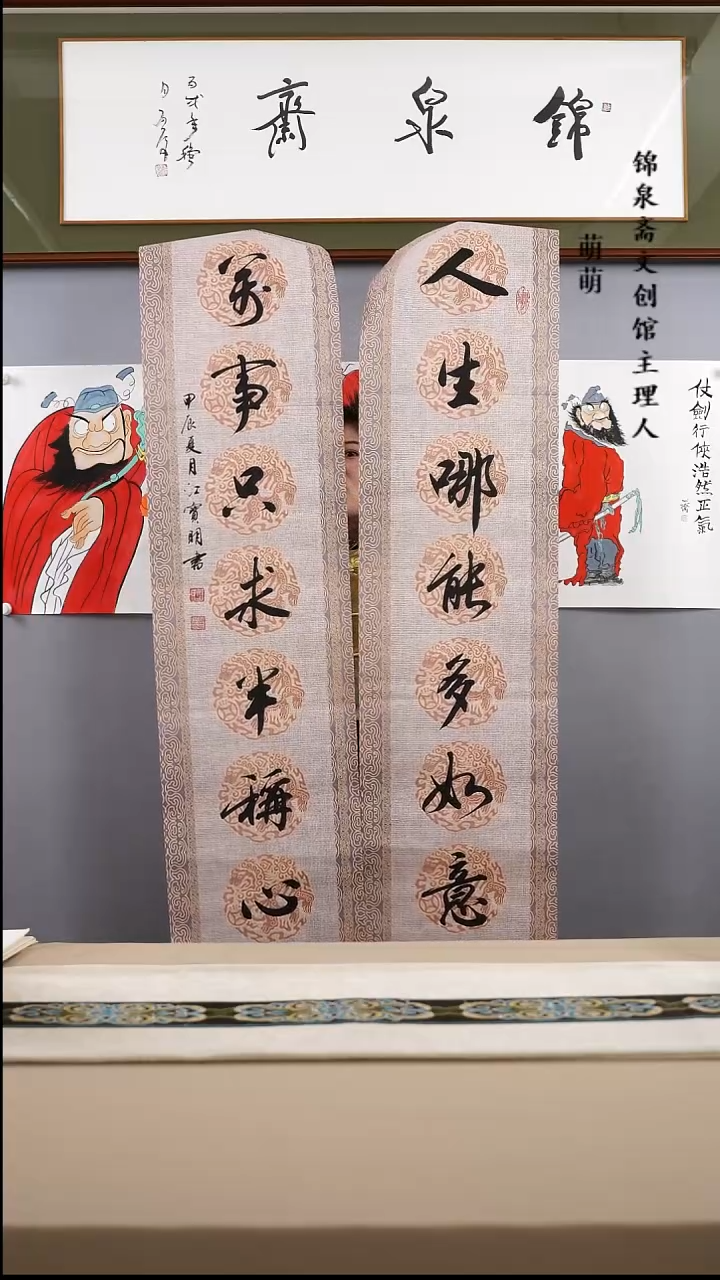 錦泉齋
锦泉斋文创馆主理人
萌萌
人生哪能多如意
萬事只求半稱心
甲辰夏月江寶明書
仗劍行俠浩然正氣